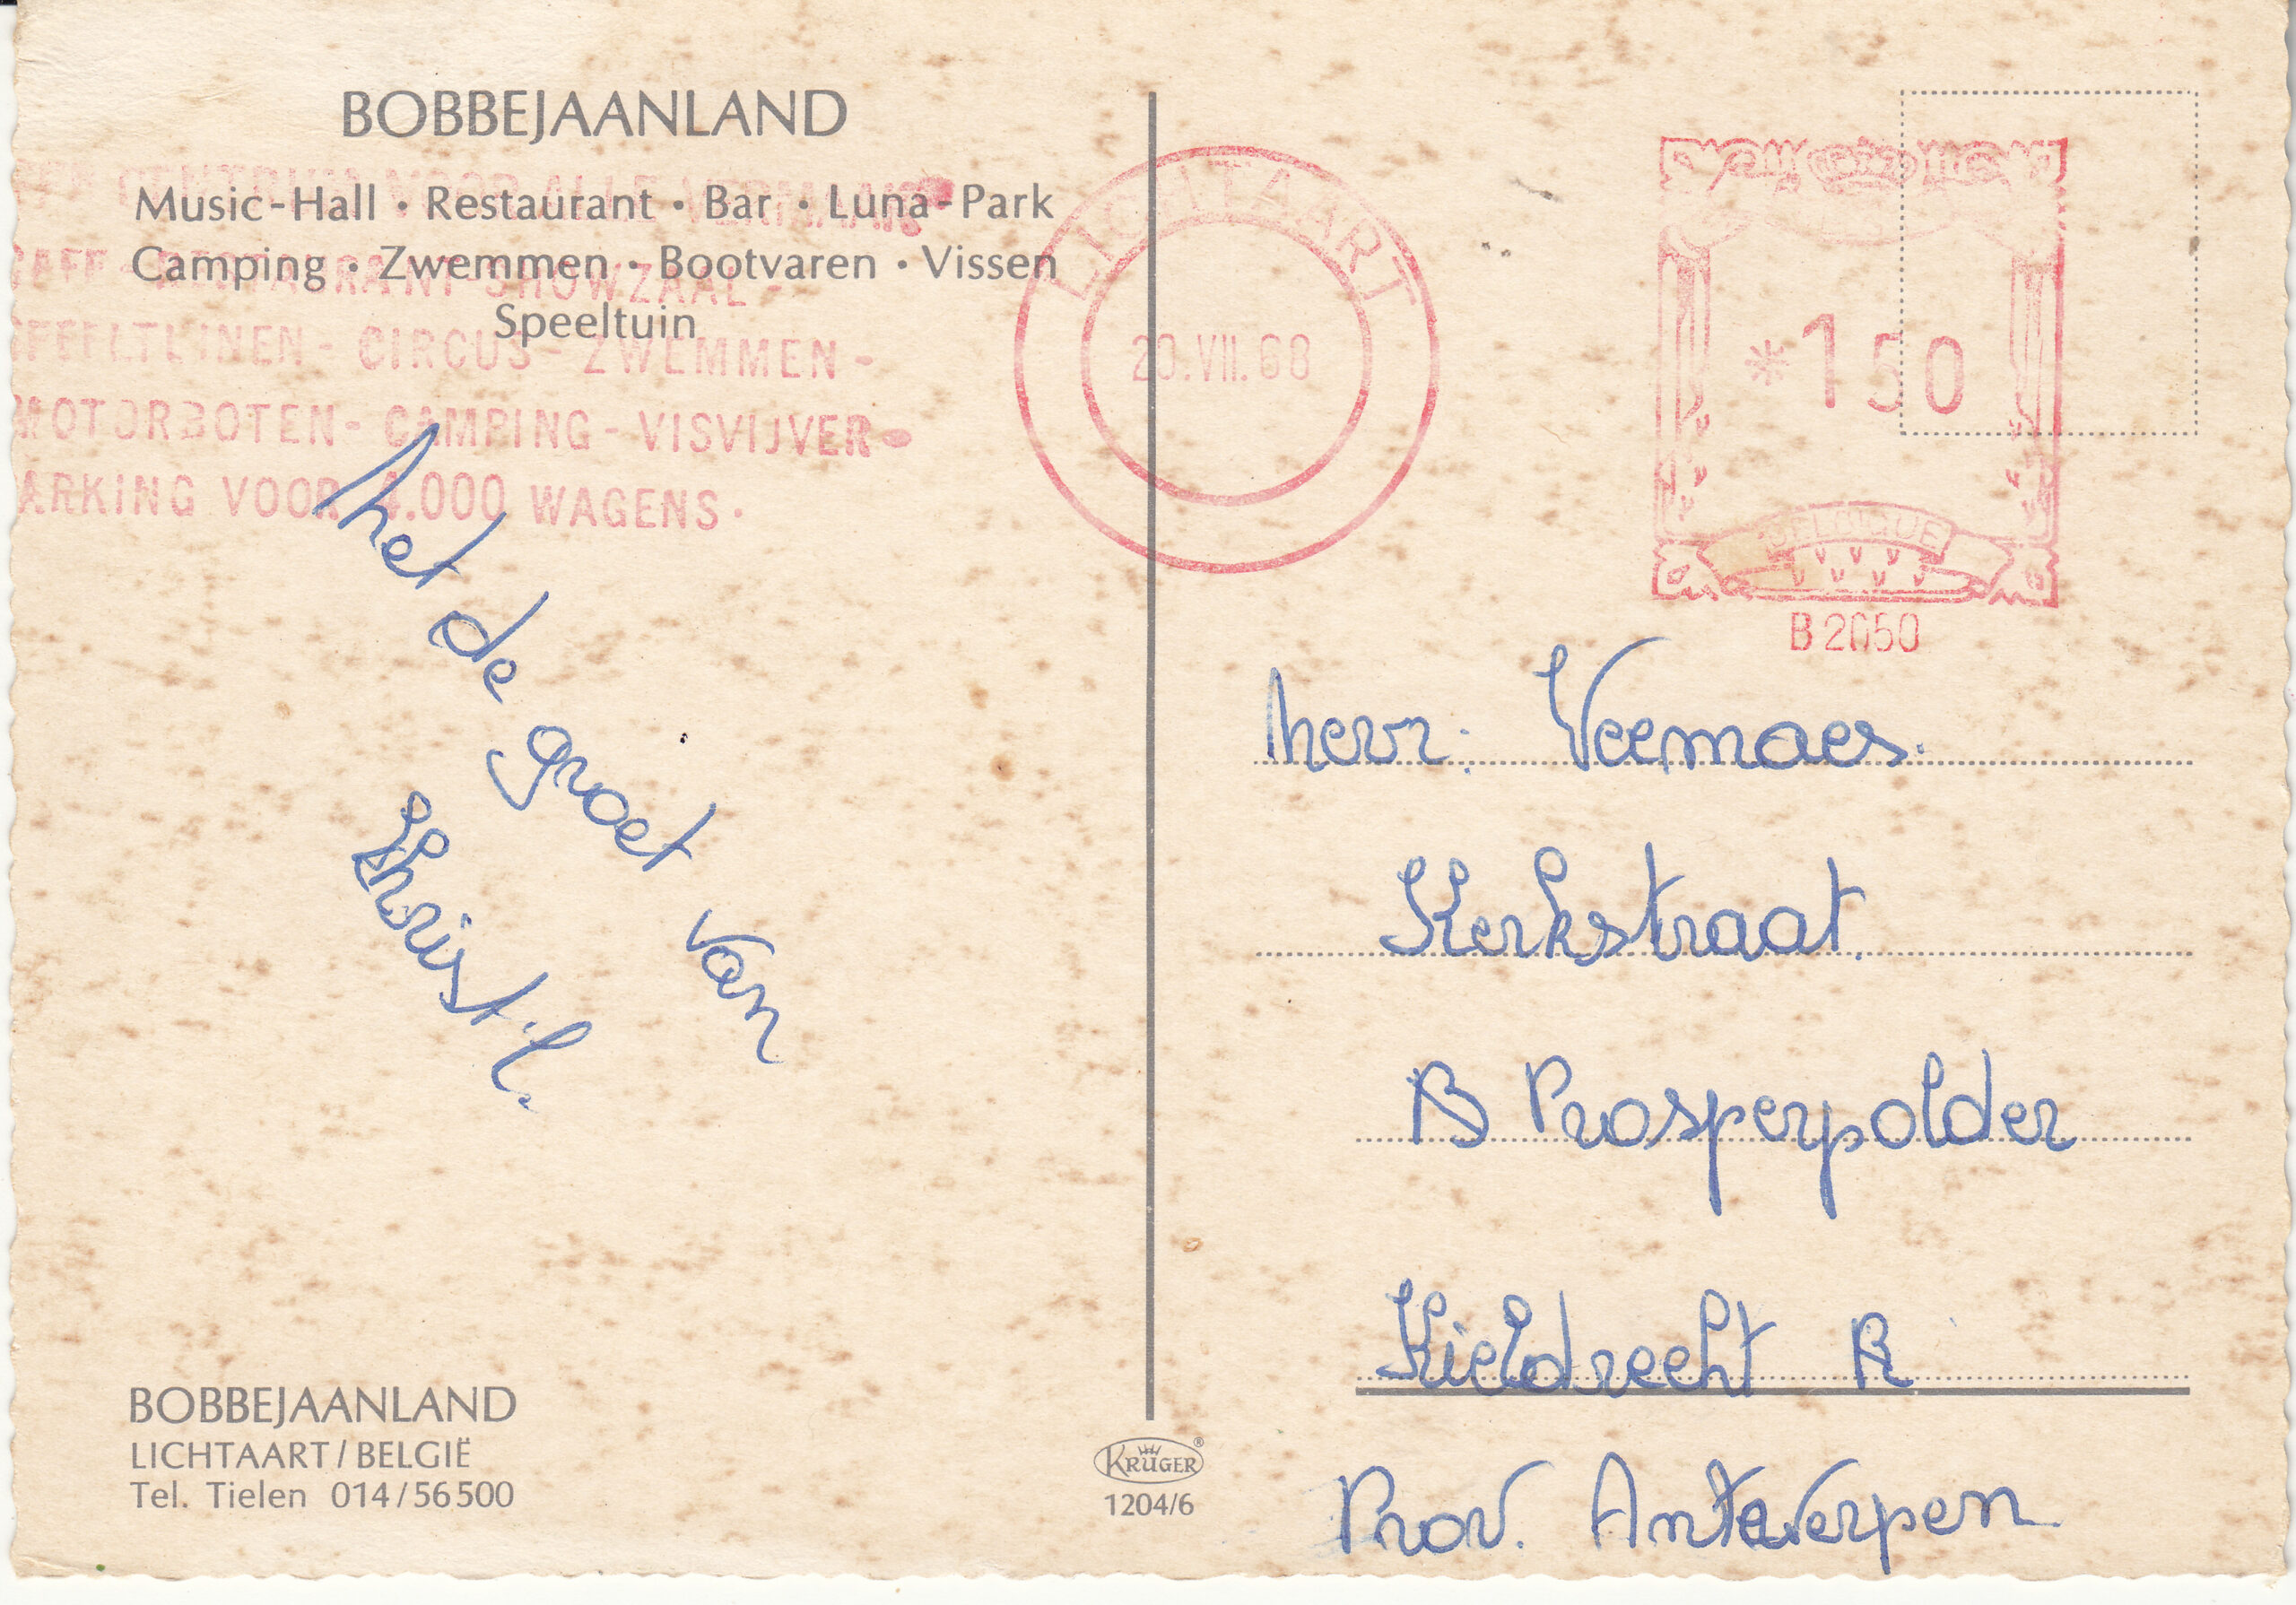 BOBBEJAANLAND
Music-Hall • Restaurant • Bar • Luna-Park
Camping • Zwemmen • Bootvaren • Vissen
Speeltuin
CENTRUM VOOR ALLE VERMAAK
RESTAURANT-SHOWZAAL-
- CIRCUS - ZWEMMEN -
MOTORBOTEN - CAMPING - VISVIJVER -
ARKING VOOR 4.000 WAGENS.
LICHTAART
20.VII.68
*150
BELGIQUE
B2050
Met de groet van
Mevr. Veemaes.
Kerkstraat.
B Prosperpolder
Kieldrecht B
Prov. Antwerpen
BOBBEJAANLAND
LICHTAART / BELGIË
Tel. Tielen 014/56500
KRÜGER®
1204/6